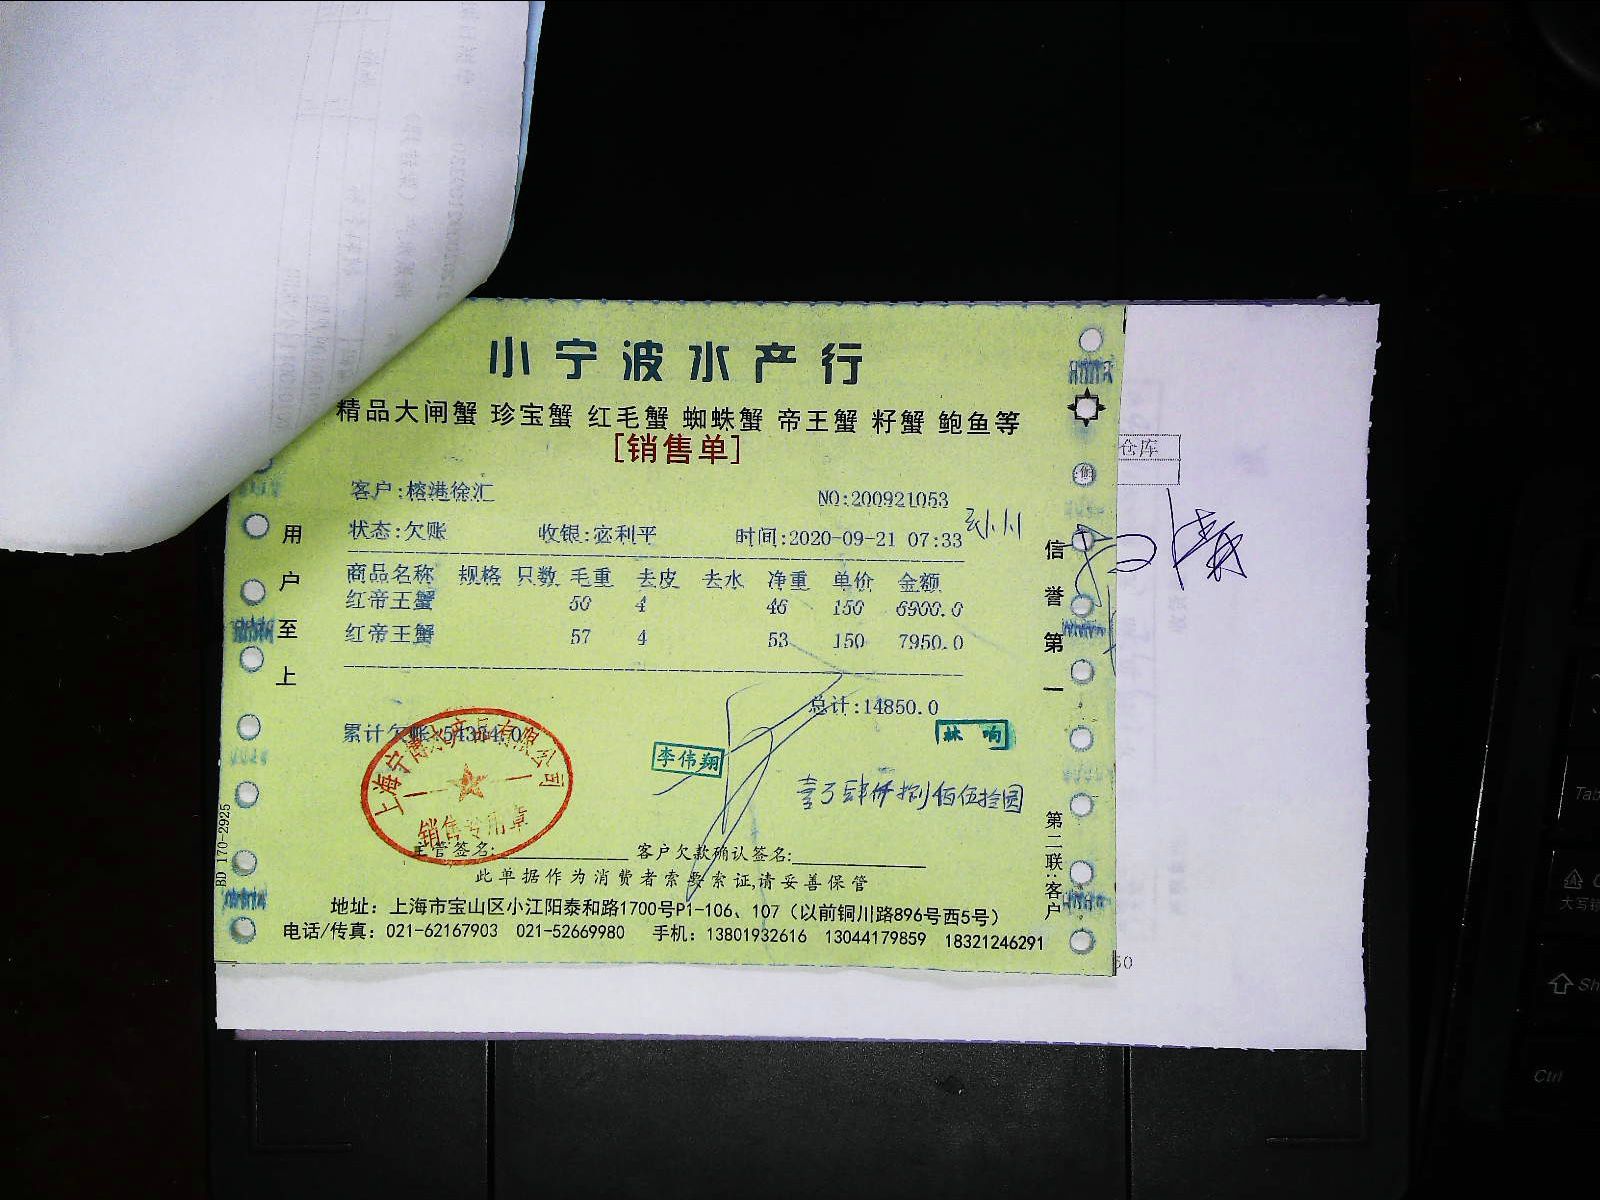 小宁波水产行
精品大闸蟹 珍宝蟹 红毛蟹 蜘蛛蟹 帝王蟹 籽蟹 鲍鱼等
[销售单]
客户:榕港徐汇 NO:200921053
状态:欠账 收银:宓利平 时间:2020-09-21 07:33
商品名称 规格 只数 毛重 去皮 去水 净重 单价 金额
红帝王蟹 50 4 46 150 6900.0
红帝王蟹 57 4 53 150 7950.0
总计:14850.0
累计欠账:
李伟翔
林响
壹万肆仟捌佰伍拾圆
销售专用章
主管签名: 客户欠款确认签名:
此单据作为消费者索要索证,请妥善保管
地址：上海市宝山区小江阳泰和路1700号P1-106、107（以前铜川路896号西5号）
电话/传真：021-62167903 021-52669980 手机：13801932616 13044179859 18321246291
用户至上
信誉第一
第二联:客户
BD 170-2925
仓库
Ctrl